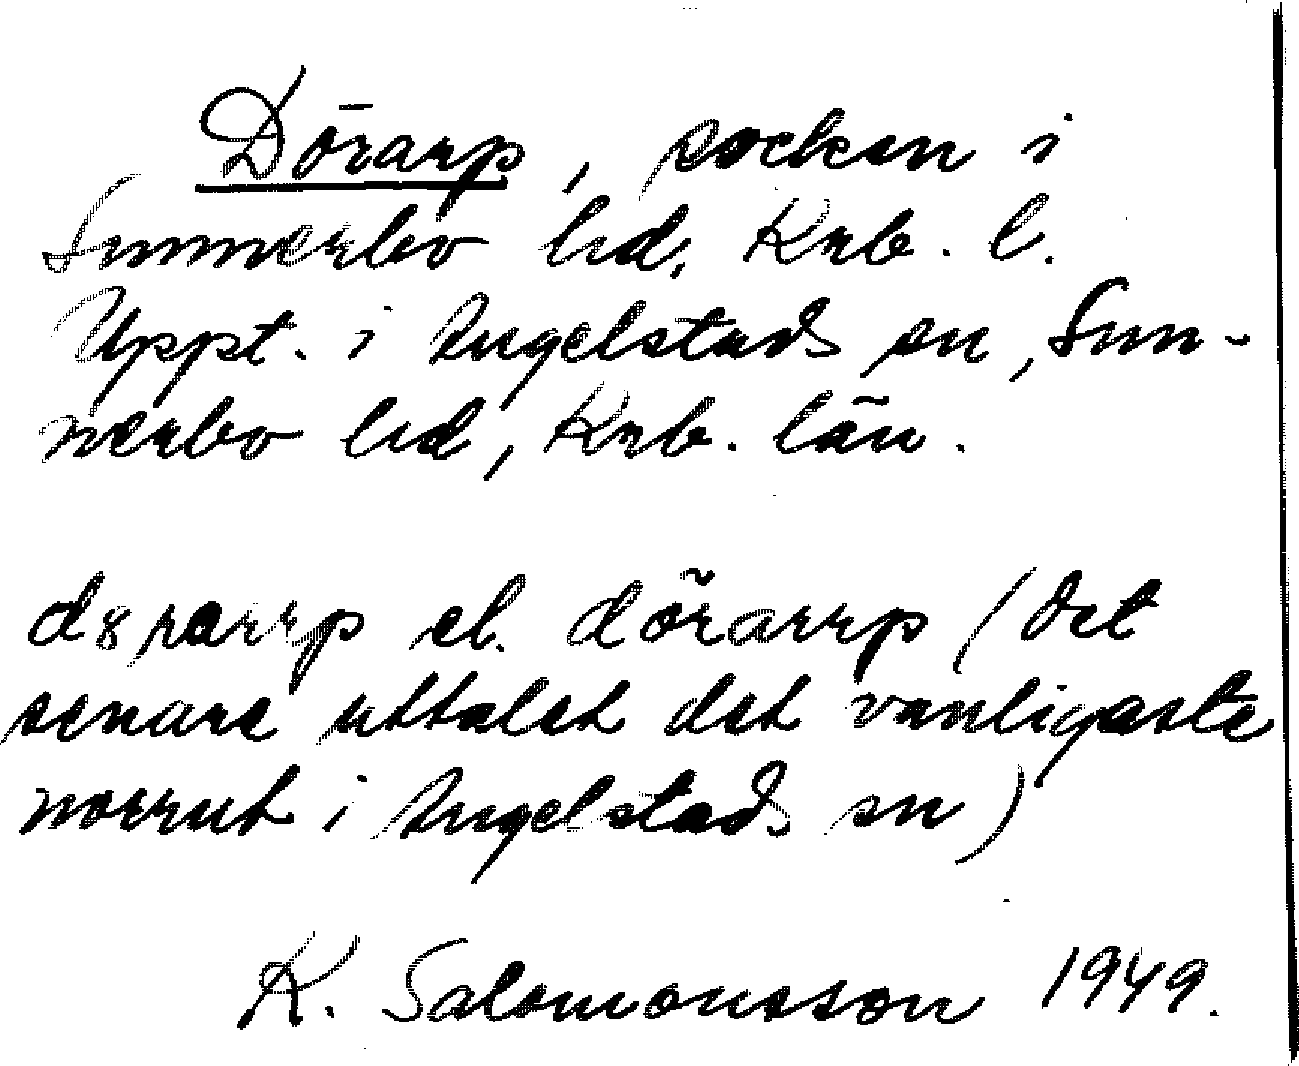 Dörarp, socken i
Sunnerbo hd, Krb. l.
Uppt. i Angelstads sn, Sun-
nerbo hd, Krb. län.
el. dörarrp (det
senare uttalet det vanligaste
norrut i Angelstads sn)
K. Salomonsson 1949.